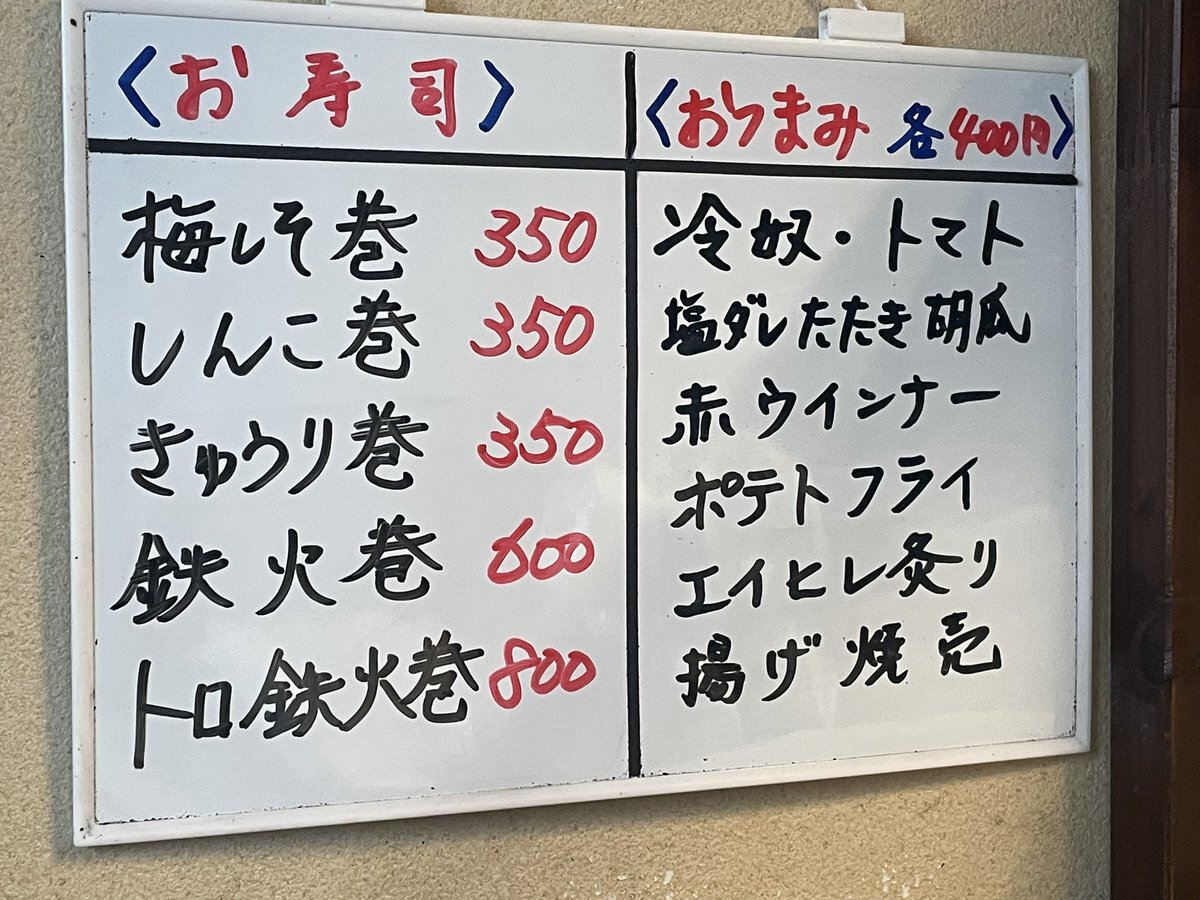 〈お寿司〉
梅しそ巻 350
しんこ巻 350
きゅうり巻 350
鉄火巻 600
トロ鉄火巻 800
〈おつまみ 各400円〉
冷奴・トマト
塩ダレたたき胡瓜
赤ウインナー
ポテトフライ
エイヒレ炙り
揚げ焼売